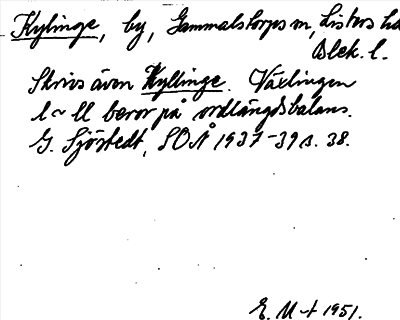 Kylinge, by, Gammalstorps sn, Listers hd
Blek. l.
Skrivs även Kyllinge. Växlingen
l ~ ll beror på ordlängdsbalans.
G. Sjöstedt, SOÅ 1937-39 s. 38.
E. M-t 1951.